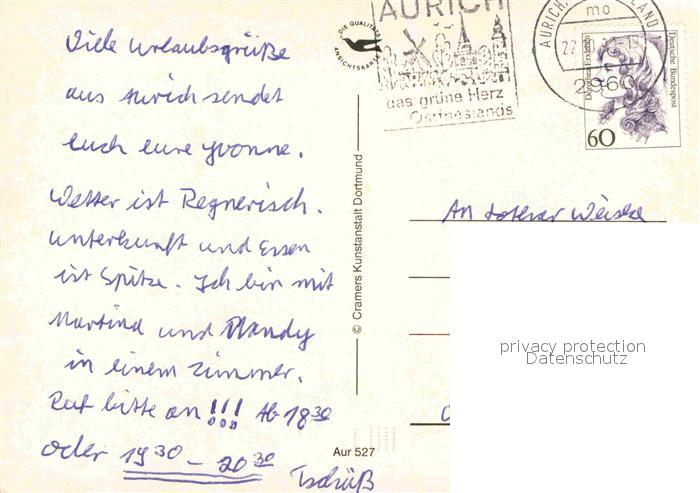 Viele Urlaubsgrüße
aus Aurich sendet
Euch eure Yvonne.
Wetter ist Regnerisch.
Unterkunft und Essen
ist Spitze. Ich bin mit
Martina und Mandy
in einem Zimmer.
Ruf bitte an!!! Ab 18 30
oder 19 30 – 20 30
Tschüß
© Cramers Kunstanstalt Dortmund
Aur 527
DIE QUALITÄTS
ANSICHTSKARTE
AURICH
das grüne Herz
Ostfrieslands
AURICH,
mo
2960
Deutsche Bundespost
60
An Lothar Weiske
privacy protection
Datenschutz